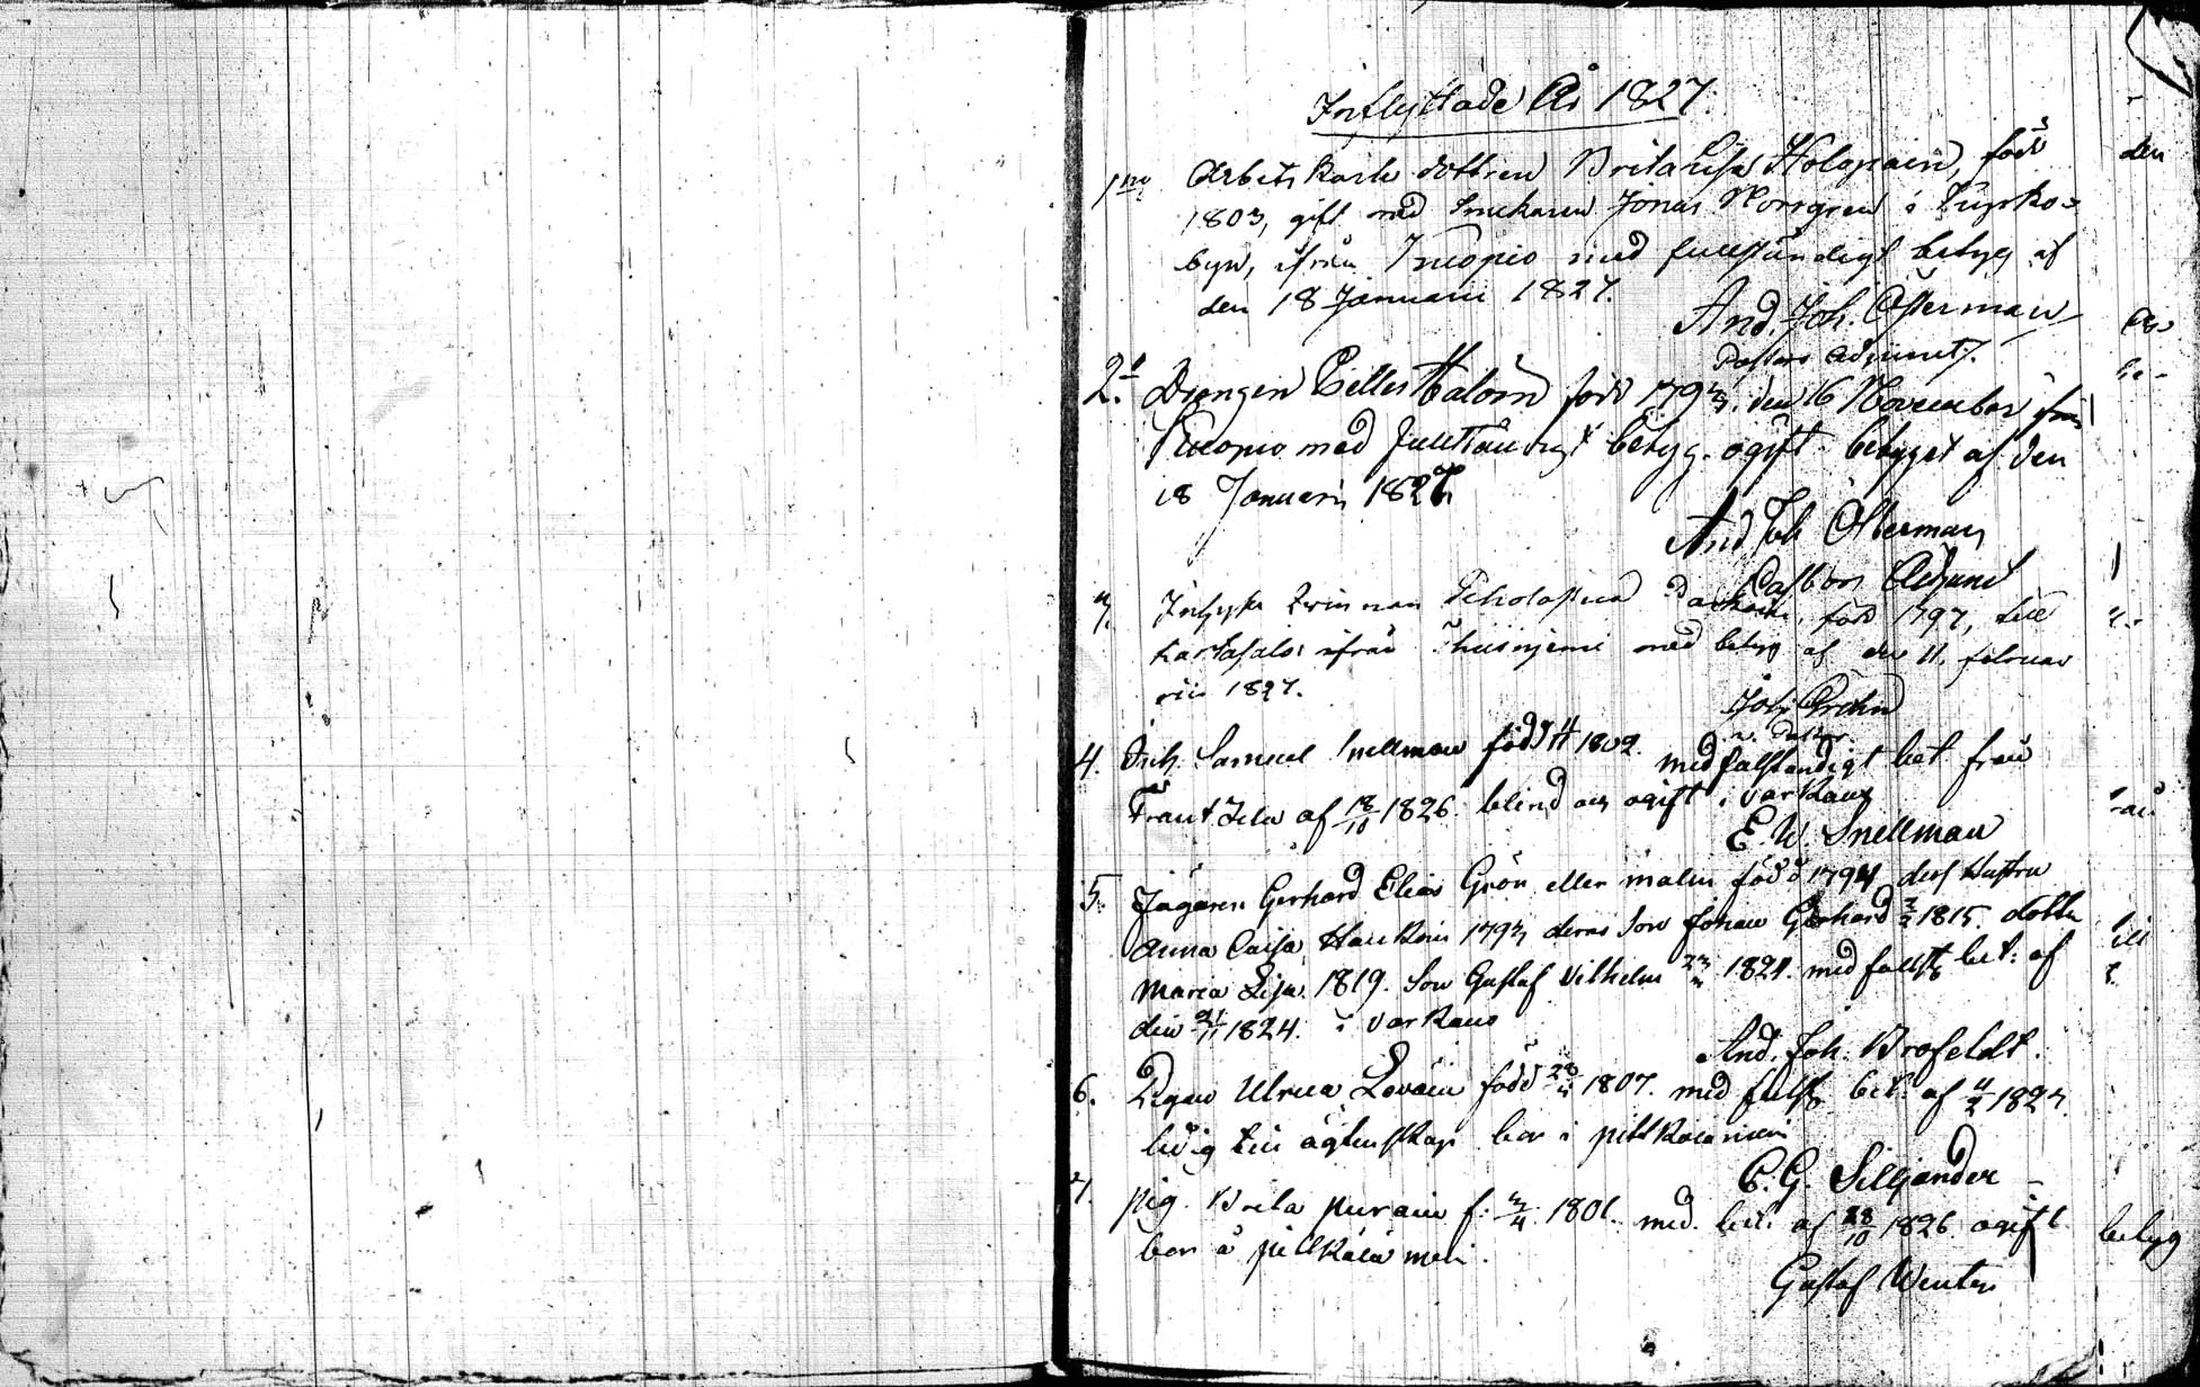 Inflyttade År 1827.
1mo Arbets Karls dottren Brita Lisa Holopain, född
1803, gift med Smeckaren Jonas Norrgren i Kyrko=
byn, ifrån Kuopio med fullständigt betyg af
den 18 Januarii 1827.
And. Joh. Österman
Pastors Adjunct.
2. Drengen Petter Haloin född 1793. den 16 November från
Kuopio med fullständigt betyg. ogift betyget af den
18 Januarii 1827.
And Joh Österman
Pastors Adjunct
3. Inhyses Qvinnan född 1797, till
Kartasalo ifrån med betyg af den 11. februar
rii 1827.
Joh.
v. Pastor.
4. Samuel Snellman född 1802. med fulständigt bet. från
af 18/10 1826. blind och ogift i Varkaus
E. W. Snellman
5. Jägaren Gerhard Elias Grön eller malm född 1794 dess Hustru
Anna Caisa Haukoin 1793 deras Son Johan Gerhard 1815. dotter
Maria Lisa. 1819. Son Gustaf Vilhelm 1821. med fullst. bet: af
den 21/11 1824. i Varkaus
And. Joh. Brofeldt.
6. Pigan Ulrica född 1807. med fullst. bet: af 1827.
ledig till ägtenskap bor i
C. G. Selljander
7. pig. Brita purain f: 3/4 1801. med. bet: af 28/10 1826. ogift
bor i
Gustaf Winter
den
betyg